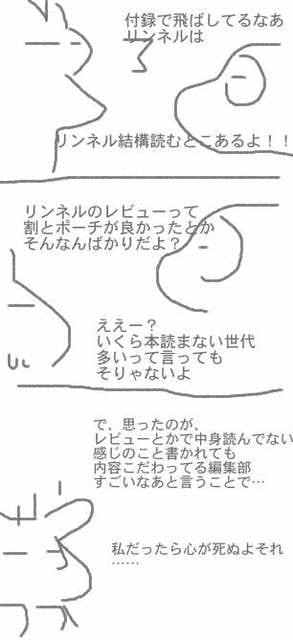 付録で飛ばしてるなあ
リンネルは
リンネル結構読むとこあるよ！！
リンネルのレビューって
割とポーチが良かったとか
そんなんばかりだよ？
ええー？
いくら本読まない世代
多いって言っても
そりゃないよ
で、思ったのが、
レビューとかで中身読んでない
感じのこと書かれても
内容こだわってる編集部
すごいなあと言うことで…
私だったら心が死ぬよそれ
……